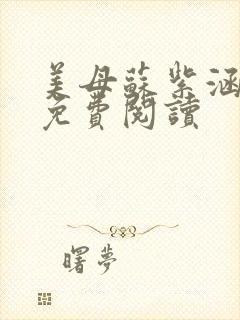 美母蘇紫涵
免費閱讀
曙夢